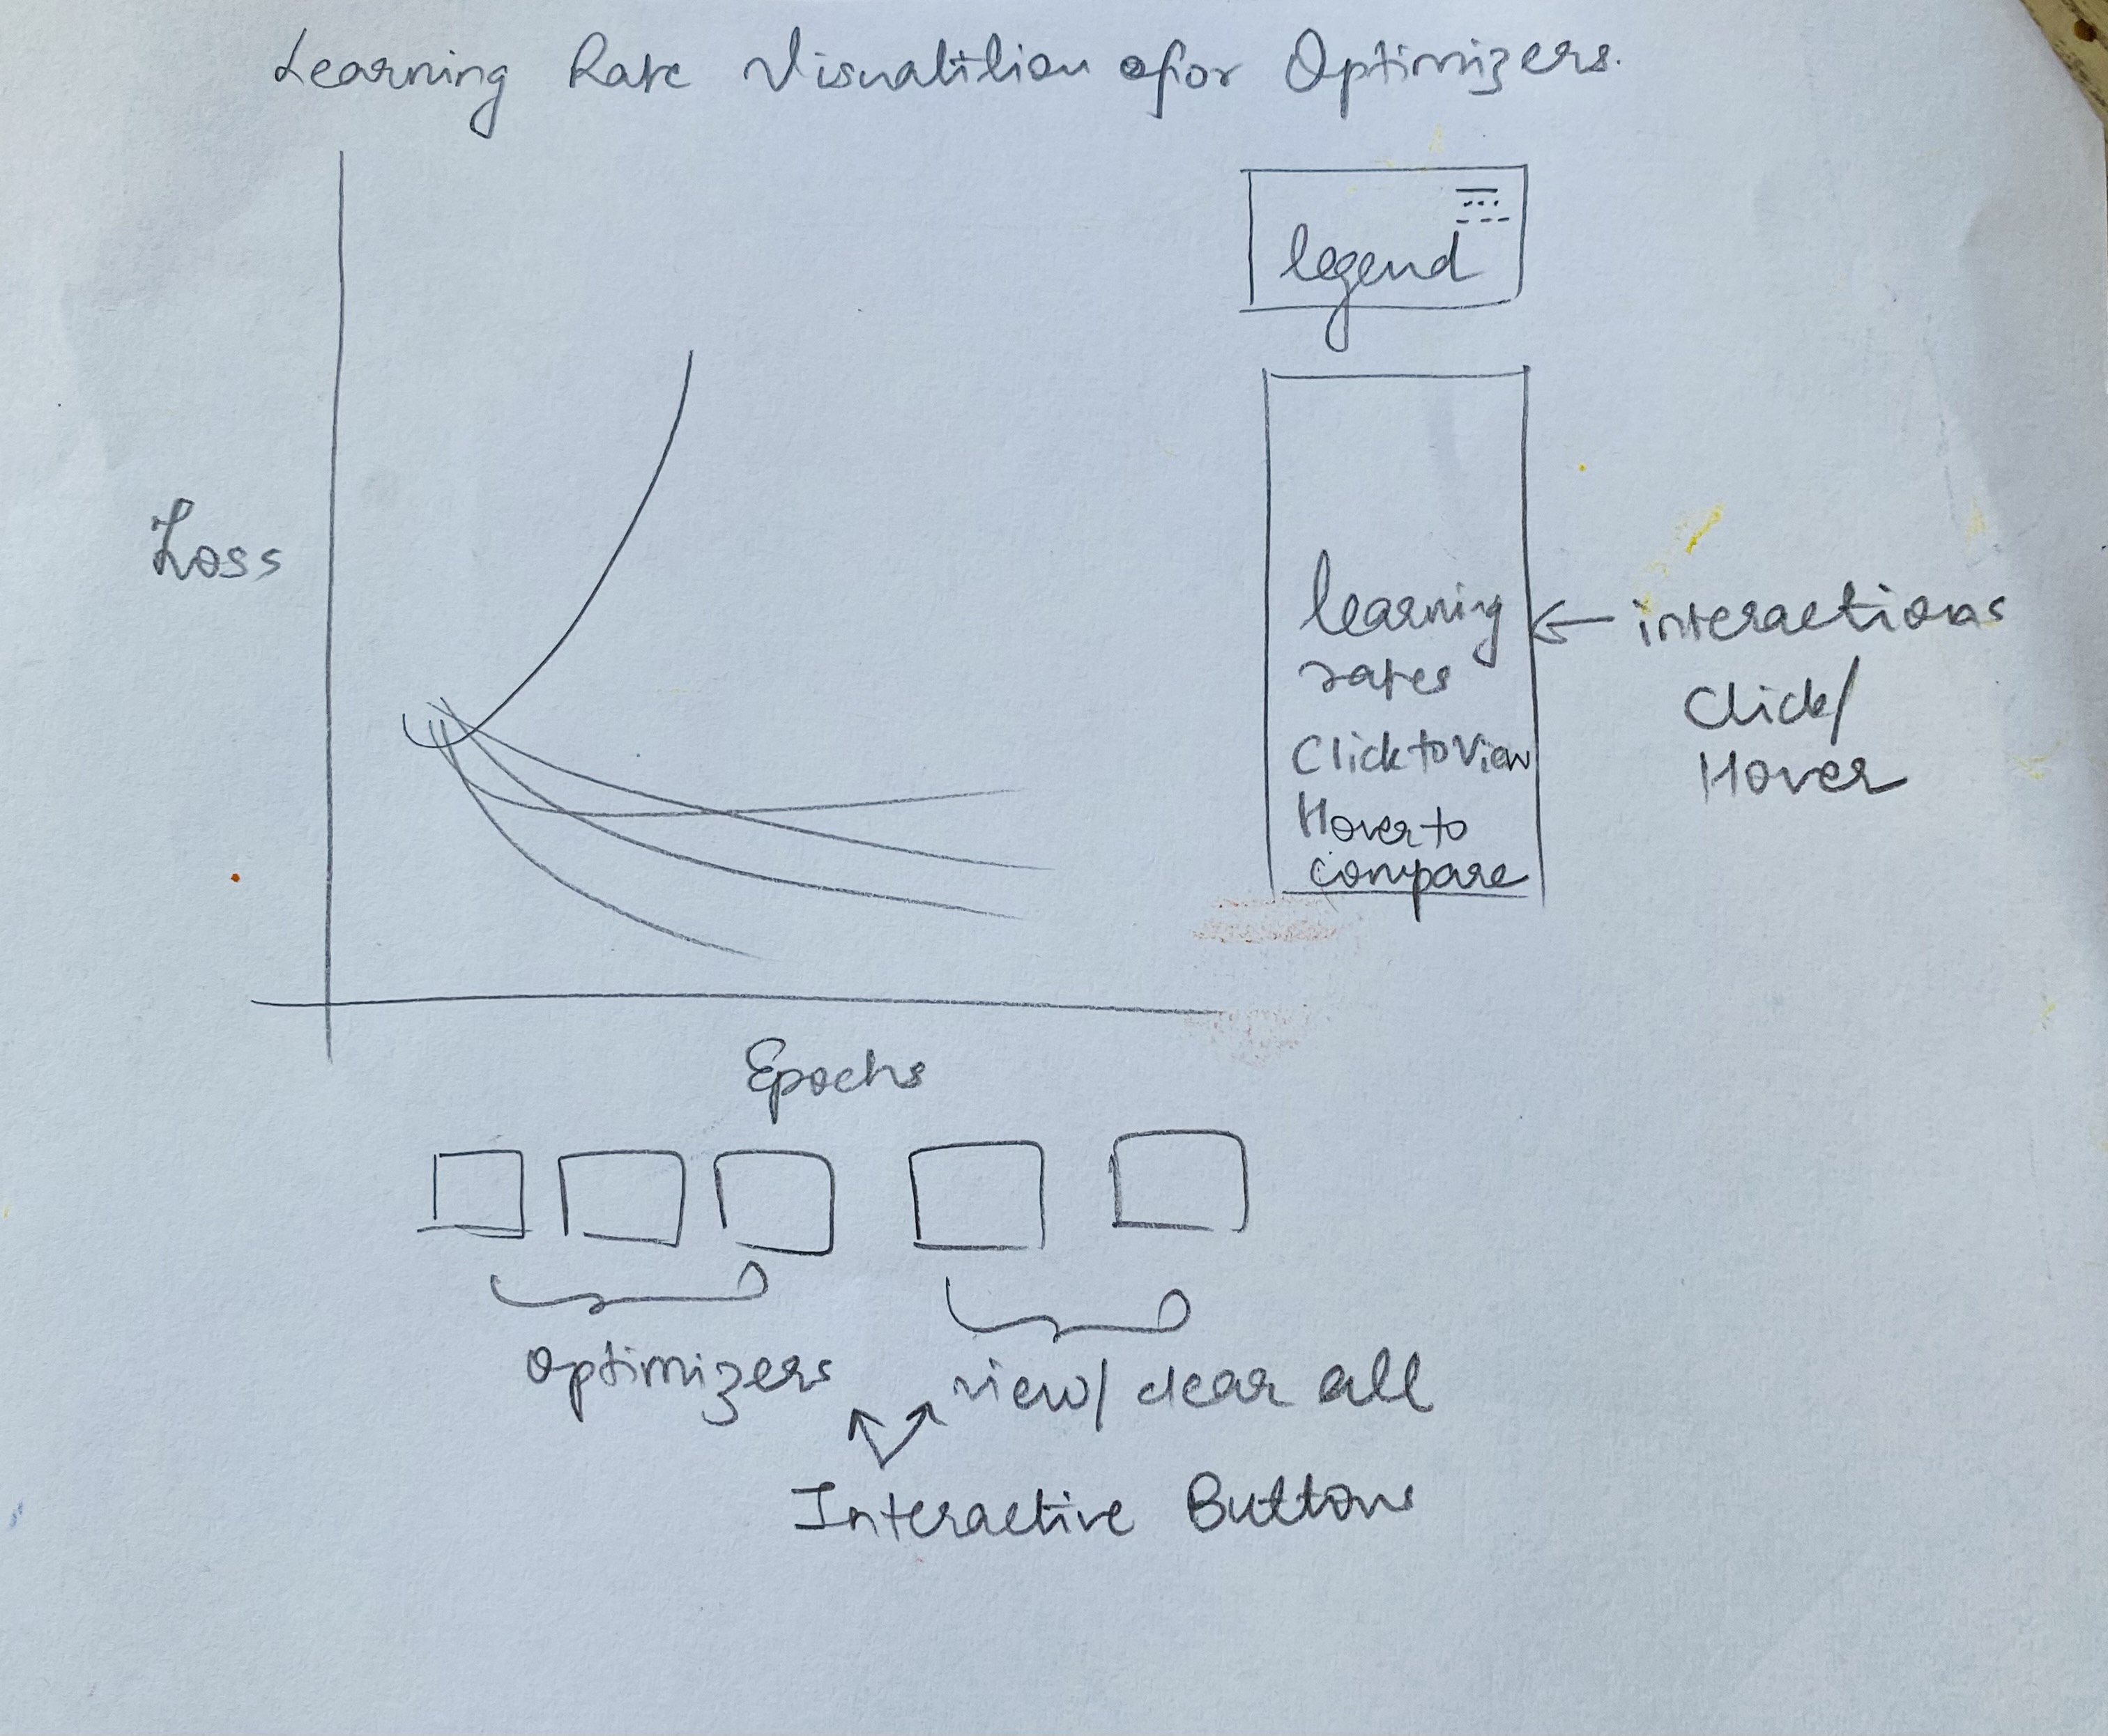 Learning Rate Visualilion for Optimizers.
legend
Loss
learning
rates
Click to View
Hover to
compare
interactions
Click/
Hover
Epochs
optimizers
view/ clear all
Interactive Buttons